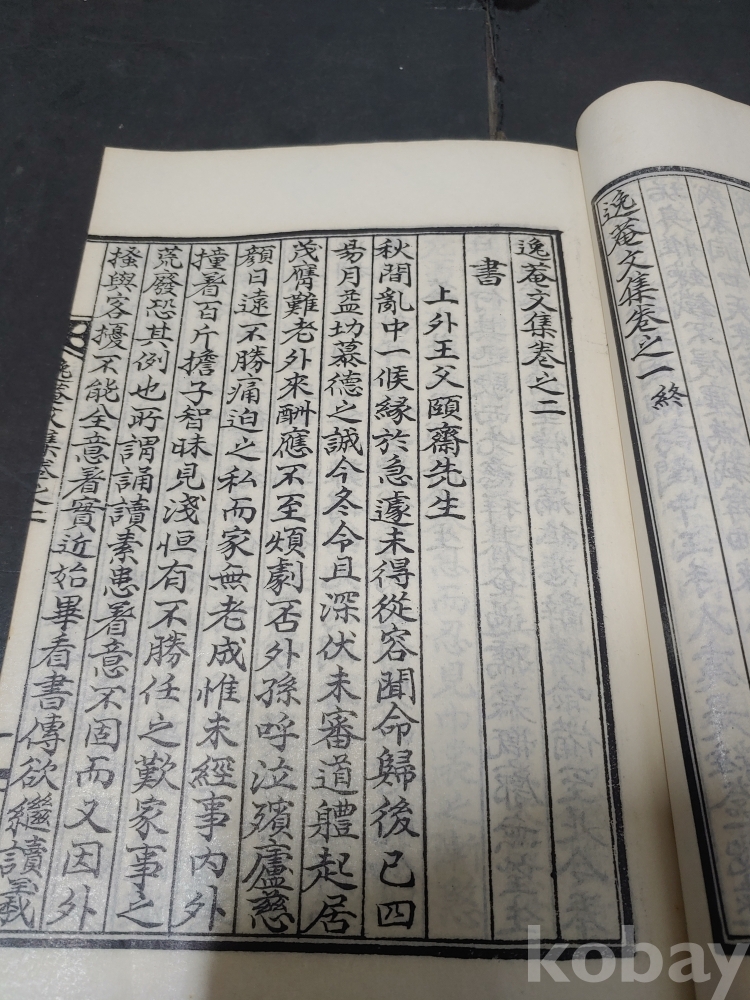 逸菴文集卷之一終
逸菴文集卷之二
書
上外王父頤齋先生
秋間亂中一候緣於急遽未得從容聞命歸後已四
昜月孟切慕德之誠今冬令且深伏未審道軆起居
茂膺難老外來酬應不至煩劇否外孫呼泣殯廬慈
顔日遠不勝痛迫之私而家無老成惟未經事內外
撞着百斤擔子智昧見淺恒有不勝任之歎家事之
荒廢恐其例也所謂誦讀素患着意不固而又因外
搔與客擾不能全意着實近始畢看書傳欲繼讀
逸菴文集卷之二
kobay